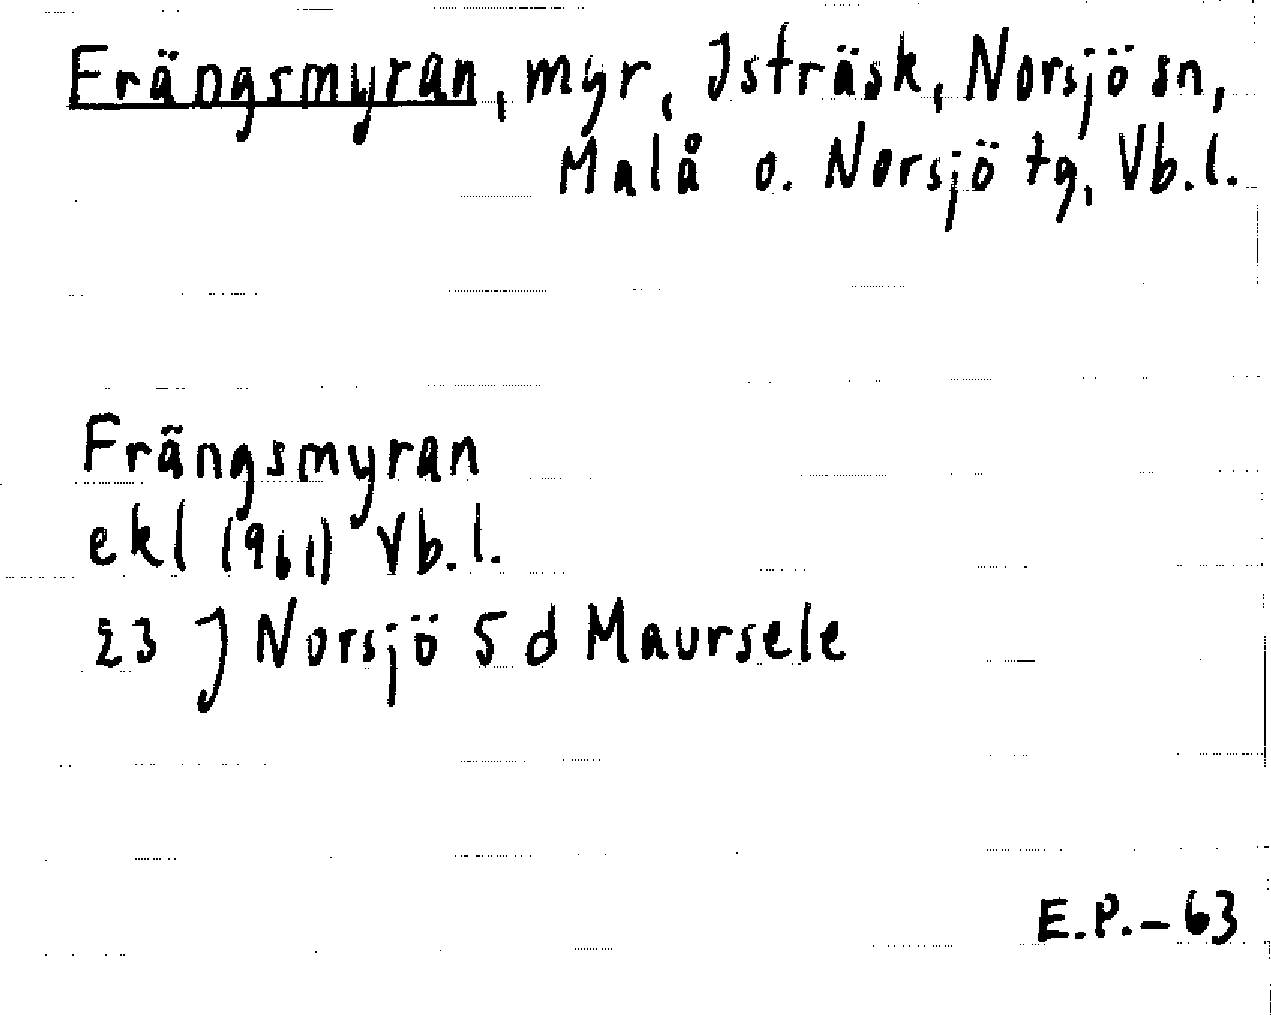 Frängsmyran, myr, Isträsk, Norsjö sn,
Malå o. Norsjö tg, Vb.l.
Frängsmyran
ekl (961) Vb.l.
23 J Norsjö 5 d Maursele
E.P.-63